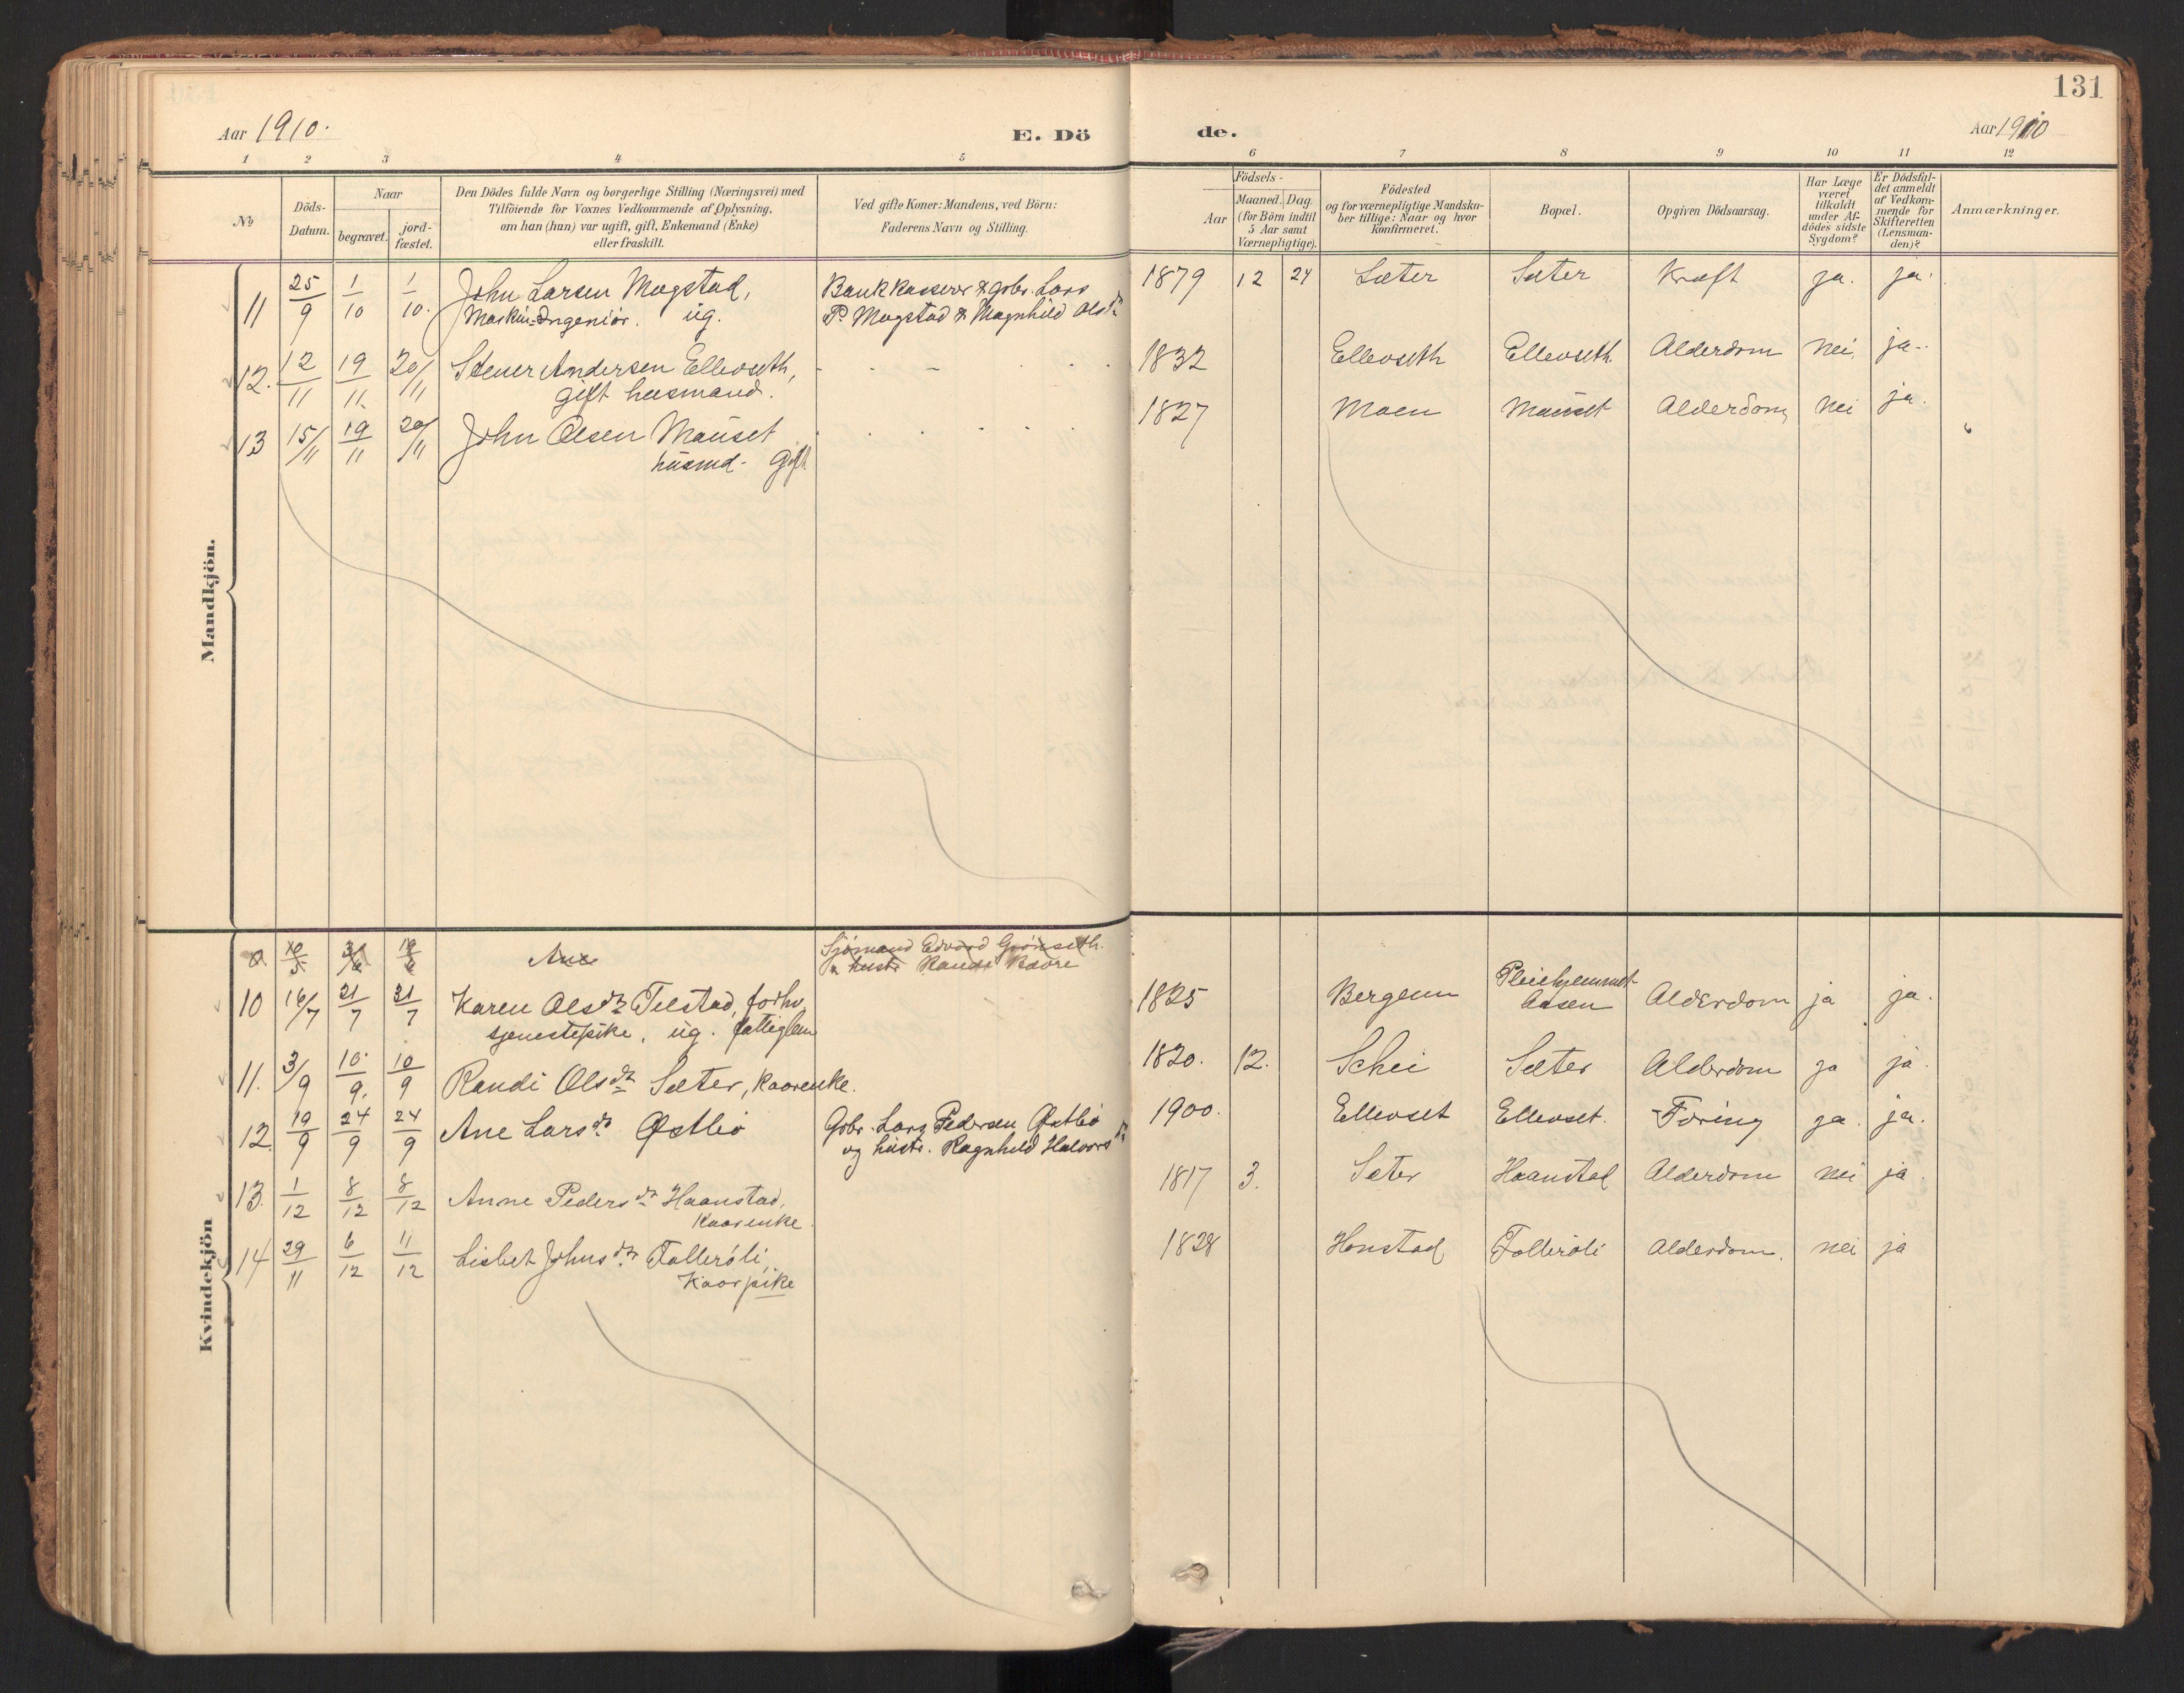 131
Aar 1910.
E. Dö
de.
Aar 1910
1 2 3 4 5
6 7 8 9 10 11 12
No
Döds-
Datum.
Naar
begravet.
jord-
fæstet.
Den Dödes fulde Navn og borgerlige Stilling (Næringsvei) med
Tilföiende for Voxnes Vedkommende af Oplysning,
om han (hun) var ugift, gift, Enkemand (Enke)
eller fraskilt.
Ved gifte Koner: Mandens, ved Börn:
Faderens Navn og Stilling.
Födsels-
Aar
Maaned. Dag.
(for Börn indtil
5 Aar samt
Værnepligtige).
Födested
og for værnepligtige Mandska-
ber tillige: Naar og hvor
konfirmeret.
Bopæl.
Opgiven Dödsaarsag.
Har Læge
været
tilkaldt
under Af-
dödes sidste
Sygdom?
Er Dödsfal-
det anmeldt
af Vedkom-
mende for
Skifteretten
(Lensman-
den)?
Anmærkninger.
Mandkjön.
11 25/9 1/10 1/10. John Larsen Mogstad, Bankkasserer & gbr. Lars 1879 12 24 Sæter Sæter Kræft ja. ja.
Maskin-Ingeniör. ug. P. Mogstad & Magnhild Olsdr
12. 12/11 19/11. 20/11 Stener Andersen Ellevseth, 1832 Ellevseth Ellevseth Alderdom nei, ja.
gift husmand.
13 15/11 19/11 20/11 John Olsen Mauset 1827 Moen Mauset Alderdom nei ja.
husmd. Gift
Kvindekjön
Ane Sjömand Edvard Grönseth.
Randi Kaare
10 16/7 21/7 31/7 Karen Olsdr Tilstad, forhv. 1825 Bergem Pleiehjemmet Aasen Alderdom ja ja.
tjenestepike, ug. fattiglem
11. 3/9 10/9. 10/9 Randi Olsdr Sæter, Kaarenke. 1820. 12. Schei Sæter Alderdom ja ja.
12. 19/9 24/9 24/9 Ane Larsdr Østbö Gbr. Lars Pedersen Østbö 1900. Ellevset Ellevset. Tæring ja. ja.
og hustr. Ragnhild Halvorsdr
13. 1/12 8/12 8/12 Anne Pedersdr Haanstad, 1817 3. Sæter Haanstad Alderdom nei ja
Kaarenke.
14 29/11 6/12 11/12 Lisbet Johnsdr Folleröli, 1828 Honstad Folleröli Alderdom. nei ja
Kaarpike